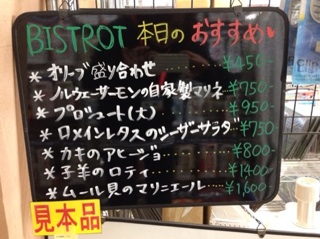 BISTROT 本日の おすすめ
* オリーブ盛り合わせ ¥450-
* ノルウェーサーモンの自家製マリネ ¥750-
* プロシュート(大) ¥950-
* ロメインレタスのシーザーサラダ ¥750
* カキのアヒージョ ¥800-
* 子羊のロティ ¥1400-
* ムール貝のマリニエール ¥1,600
見本品